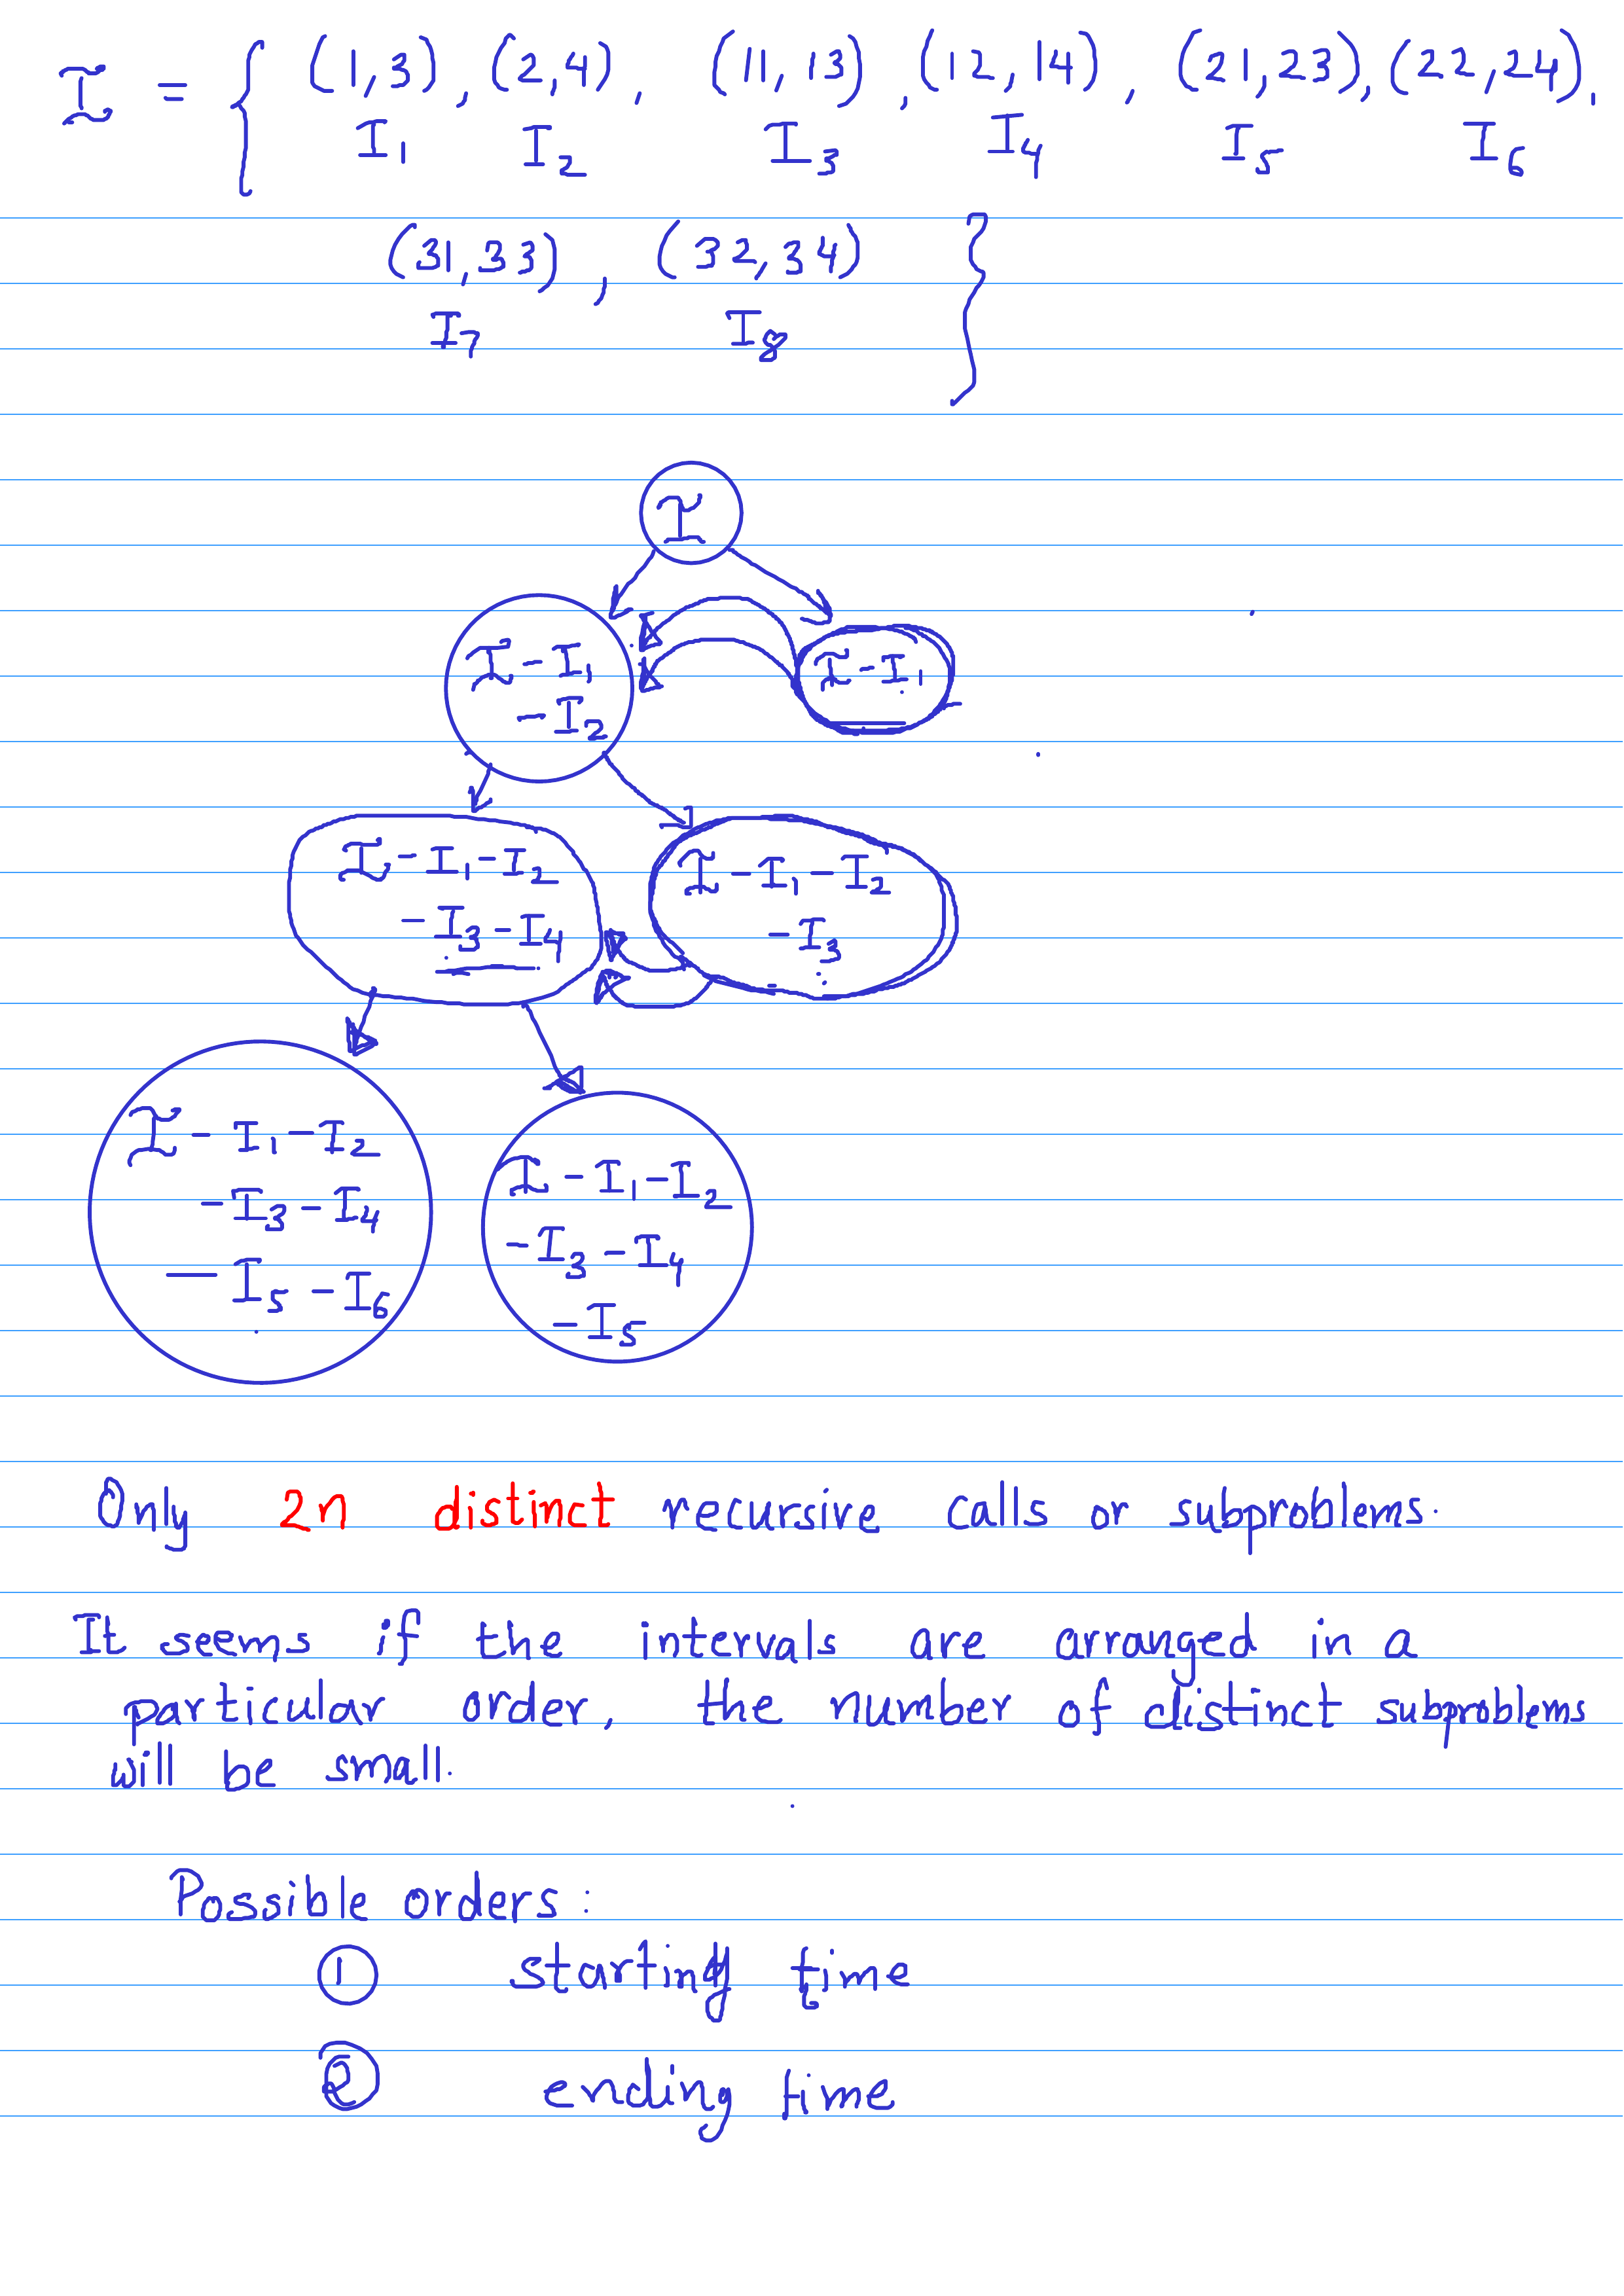 I = { (1,3), (2,4), (11,13), (12,14), (21,23), (22,24),
I₁ I₂ I₃ I₄ I₅ I₆
(31,33), (32,34) }
I₇ I₈
I
I - I₁
- I₂
I - I₁
I - I₁ - I₂
- I₃ - I₄
I - I₁ - I₂
- I₃
I - I₁ - I₂
- I₃ - I₄
- I₅ - I₆
I - I₁ - I₂
- I₃ - I₄
- I₅
Only 2n distinct recursive calls or subproblems.
It seems if the intervals are arranged in a
particular order, the number of distinct subproblems
will be small.
Possible orders:
① starting time
② ending time